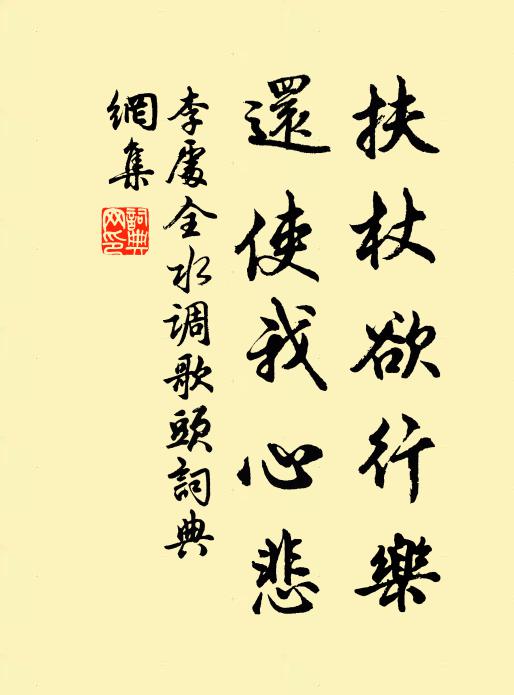 扶杖欲行樂
還使我心悲
李處全水調歌頭詞典
網集
詞典
网印